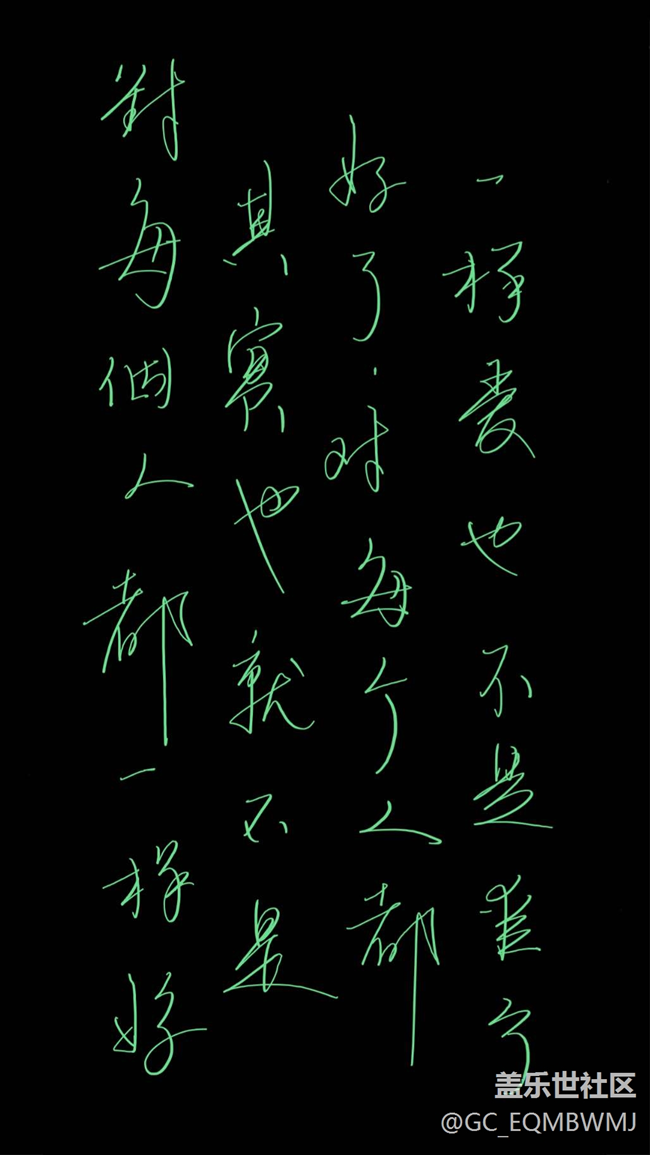 對每個人都一样好
其實也就不是
好了.对每个人都
一样爱也不是
盖乐世社区
@GC_EQMBWMJ